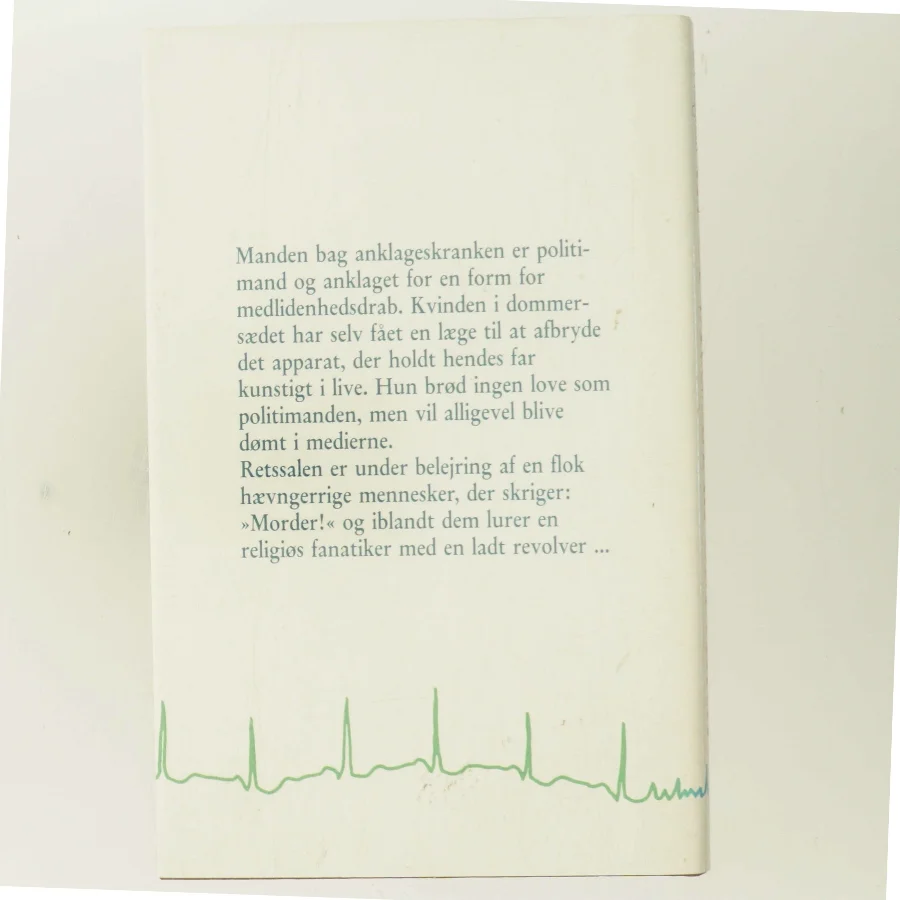 Manden bag anklageskranken er politi-
mand og anklaget for en form for
medlidenhedsdrab. Kvinden i dommer-
sædet har selv fået en læge til at afbryde
det apparat, der holdt hendes far
kunstigt i live. Hun brød ingen love som
politimanden, men vil alligevel blive
dømt i medierne.
Retssalen er under belejring af en flok
hævngerrige mennesker, der skriger:
»Morder!« og iblandt dem lurer en
religiøs fanatiker med en ladt revolver ...